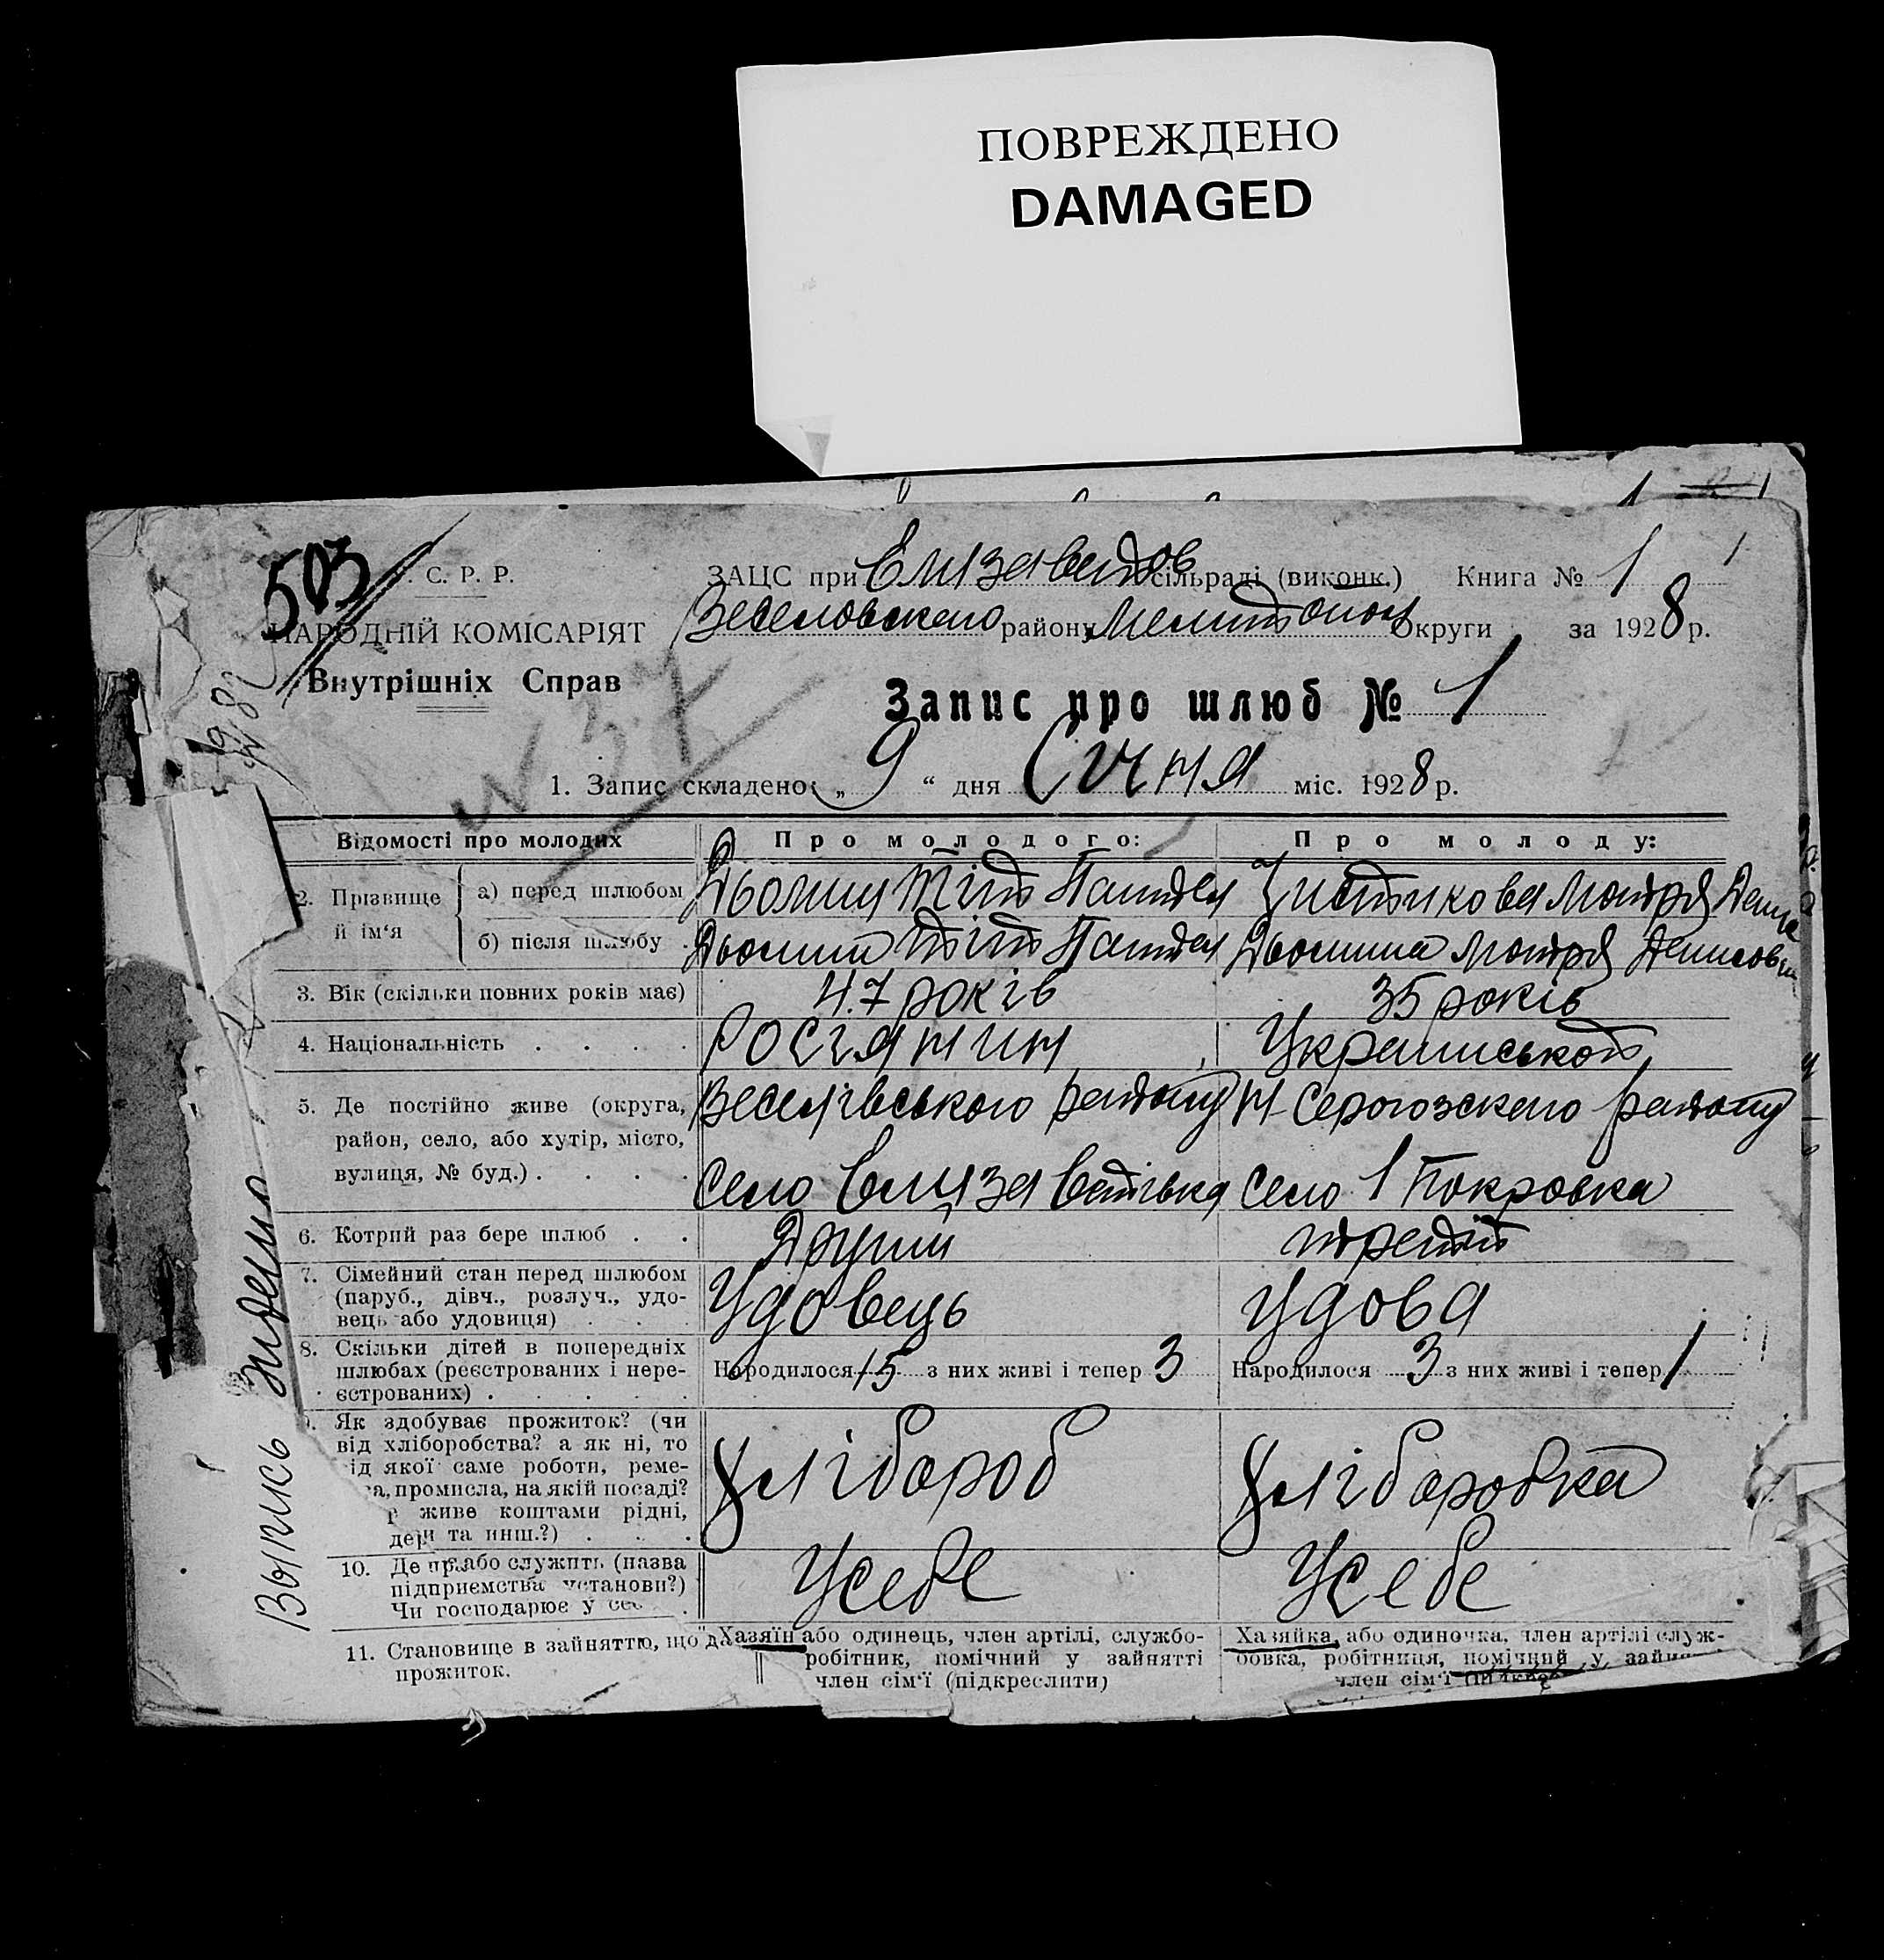 ПОВРЕЖДЕНО
DAMAGED
503
С. Р. Р.
ЗАЦС при Елизаветов сільраді (виконк.) Книга № 1
1
НАРОДНІЙ КОМІСАРІЯТ
Веселовского району Мелитопол Округи за 1928 р.
Внутрішніх Справ
N 37
Запис про шлюб № 1
1. Запис складено: „ 9 “ дня Січня міс. 1928 р.
Відомості про молодих Про молодого: Про молоду:
2. Прізвище й ім‘я
а) перед шлюбом Дьомин Тіт Чистикова Мотря
б) після шлюбу Дьомин Тіт Дьомина Мотря Денисовн
3. Вік (скільки повних років має) 47 років 35 років
4. Національність . . . . Росіянин Украиньской
5. Де постійно живе (округа, Веселівського району Н-Серогозского району
район, село, або хутір, місто,
вулиця, № буд.) . . . . село Елизаветівка село 1 Покровка
6. Котрий раз бере шлюб . . Другий третій
7. Сімейний стан перед шлюбом
(паруб., дівч., розлуч., удо-
вець або удовиця) . . . Удовець Удова
8. Скільки дітей в попередніх
шлюбах (реєстрованих і нере-
єстрованих) . . . . . Народилося 15 з них живі і тепер 3 Народилося 3 з них живі і тепер 1
Як здобуває прожиток? (чи
від хліборобства? а як ні, то
якої саме роботи, реме-
промисла, на якій посаді?
живе коштами рідні,
та инш.?) . . . Хлібороб Хліборобка
10. Де або служить (назва
підприємства установи?)
Чи господарює у Усебе Усебе
11. Становище в зайняттю, що
прожиток.
Хазяїн або одинець, член артілі, службо-
робітник, помічний у зайнятті
член сім‘ї (підкреслити)
Хазяйка, або одиночка, член артілі служ-
бовка, робітниця, помічний у
член сім‘ї
Выпись